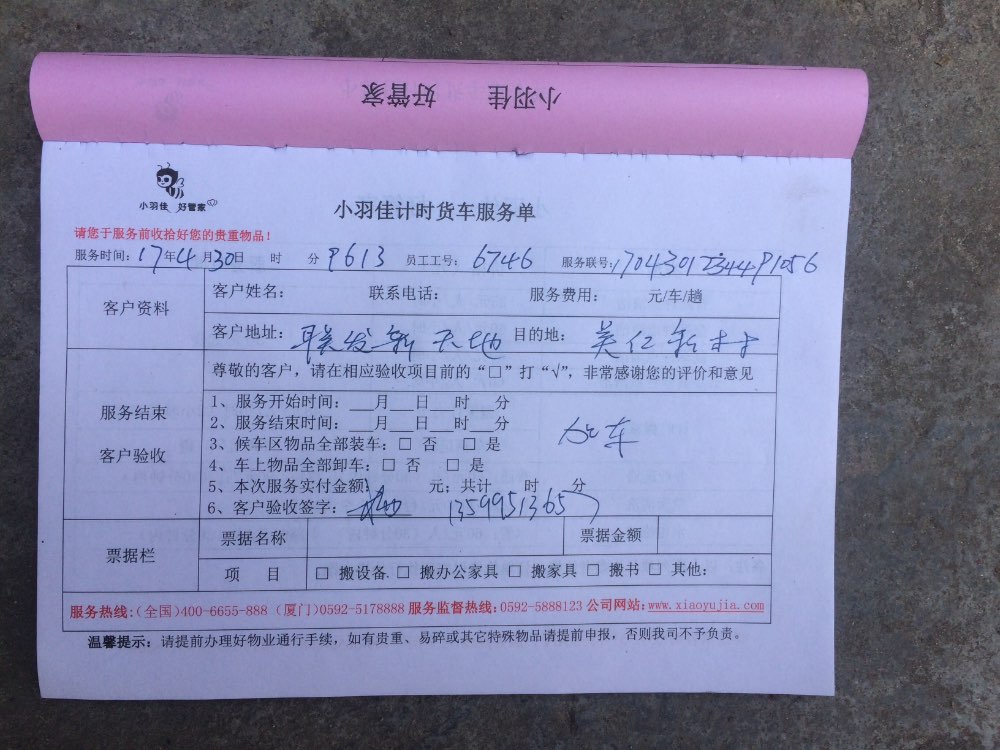 小羽佳 好管家
小羽佳 好管家
小羽佳计时货车服务单
请您于服务前收拾好您的贵重物品！
服务时间：17年4月30日 时 分 P613 员工工号：6746 服务联号：
客户资料 客户姓名： 联系电话： 服务费用： 元/车/趟
客户地址：联发新天地 目的地：
服务结束 客户验收
尊敬的客户，请在相应验收项目前的“□”打“√”，非常感谢您的评价和意见
1、服务开始时间：___月___日___时___分
2、服务结束时间：___月___日___时___分
3、候车区物品全部装车：□ 否 □ 是
4、车上物品全部卸车：□ 否 □ 是
5、本次服务实付金额： 元；共计 时 分
6、客户验收签字：
票据栏 票据名称 票据金额
项 目 □ 搬设备 □ 搬办公家具 □ 搬家具 □ 搬书 □ 其他：
服务热线：（全国）400-6655-888（厦门）0592-5178888 服务监督热线：0592-5888123 公司网站：www.xiaoyujia.com
温馨提示：请提前办理好物业通行手续，如有贵重、易碎或其它特殊物品请提前申报，否则我司不予负责。